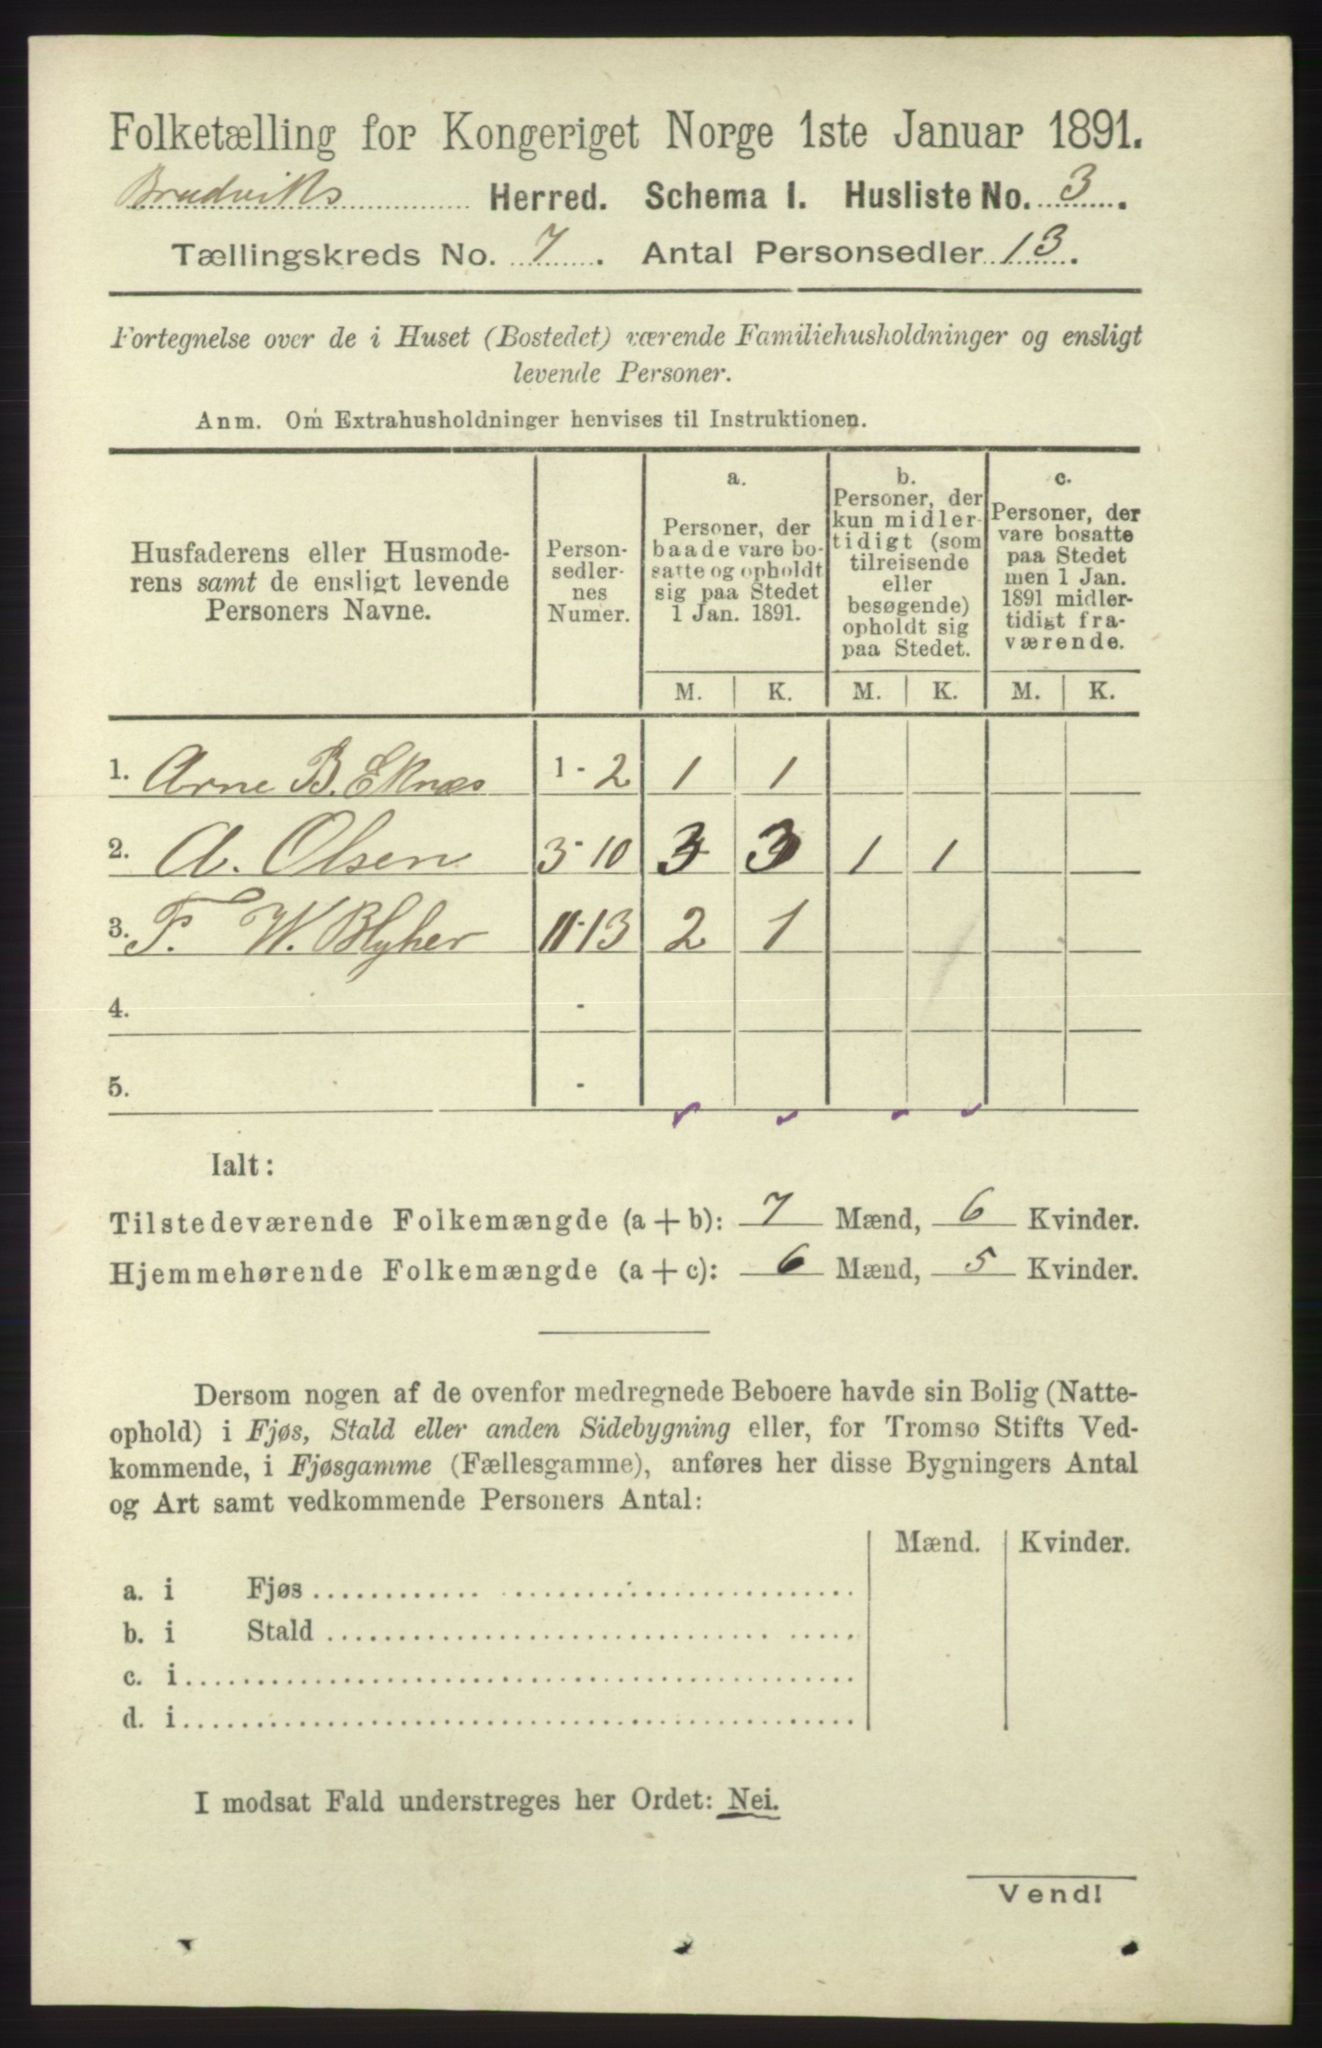 Folketælling for Kongeriget Norge 1ste Januar 1891.
Bruviks Herred. Schema I. Husliste No. 3.
Tællingskreds No. 7. Antal Personsedler 13.
Fortegnelse over de i Huset (Bostedet) værende Familiehusholdninger og ensligt
levende Personer.
Anm. Om Extrahusholdninger henvises til Instruktionen.
Husfaderens eller Husmode-
rens samt de ensligt levende
Personers Navne.
Person-
sedler-
nes
Numer.
a.
Personer, der
baade vare bo-
satte og opholdt
sig paa Stedet
1 Jan. 1891.
b.
Personer, der
kun midler-
tidigt (som
tilreisende
eller
besøgende)
opholdt sig
paa Stedet.
c.
Personer, der
vare bosatte
paa Stedet
men 1 Jan.
1891 midler-
tidigt fra-
værende.
M. K. M. K. M. K.
1. Arne B. Eknæs 1 - 2 1 1
2. A. Olsen 3 - 10 3 3 1 1
3. F. W. Blyher 11 - 13 2 1
4. -
5. -
Ialt:
Tilstedeværende Folkemængde (a + b): 7 Mænd, 6 Kvinder.
Hjemmehørende Folkemængde (a + c): 6 Mænd, 5 Kvinder.
Dersom nogen af de ovenfor medregnede Beboere havde sin Bolig (Natte-
ophold) i Fjøs, Stald eller anden Sidebygning eller, for Tromsø Stifts Ved-
kommende, i Fjøsgamme (Fællesgamme), anføres her disse Bygningers Antal
og Art samt vedkommende Personers Antal:
Mænd. Kvinder.
a. i Fjøs
b. i Stald
c. i
d. i
I modsat Fald understreges her Ordet: Nei.
Vend!